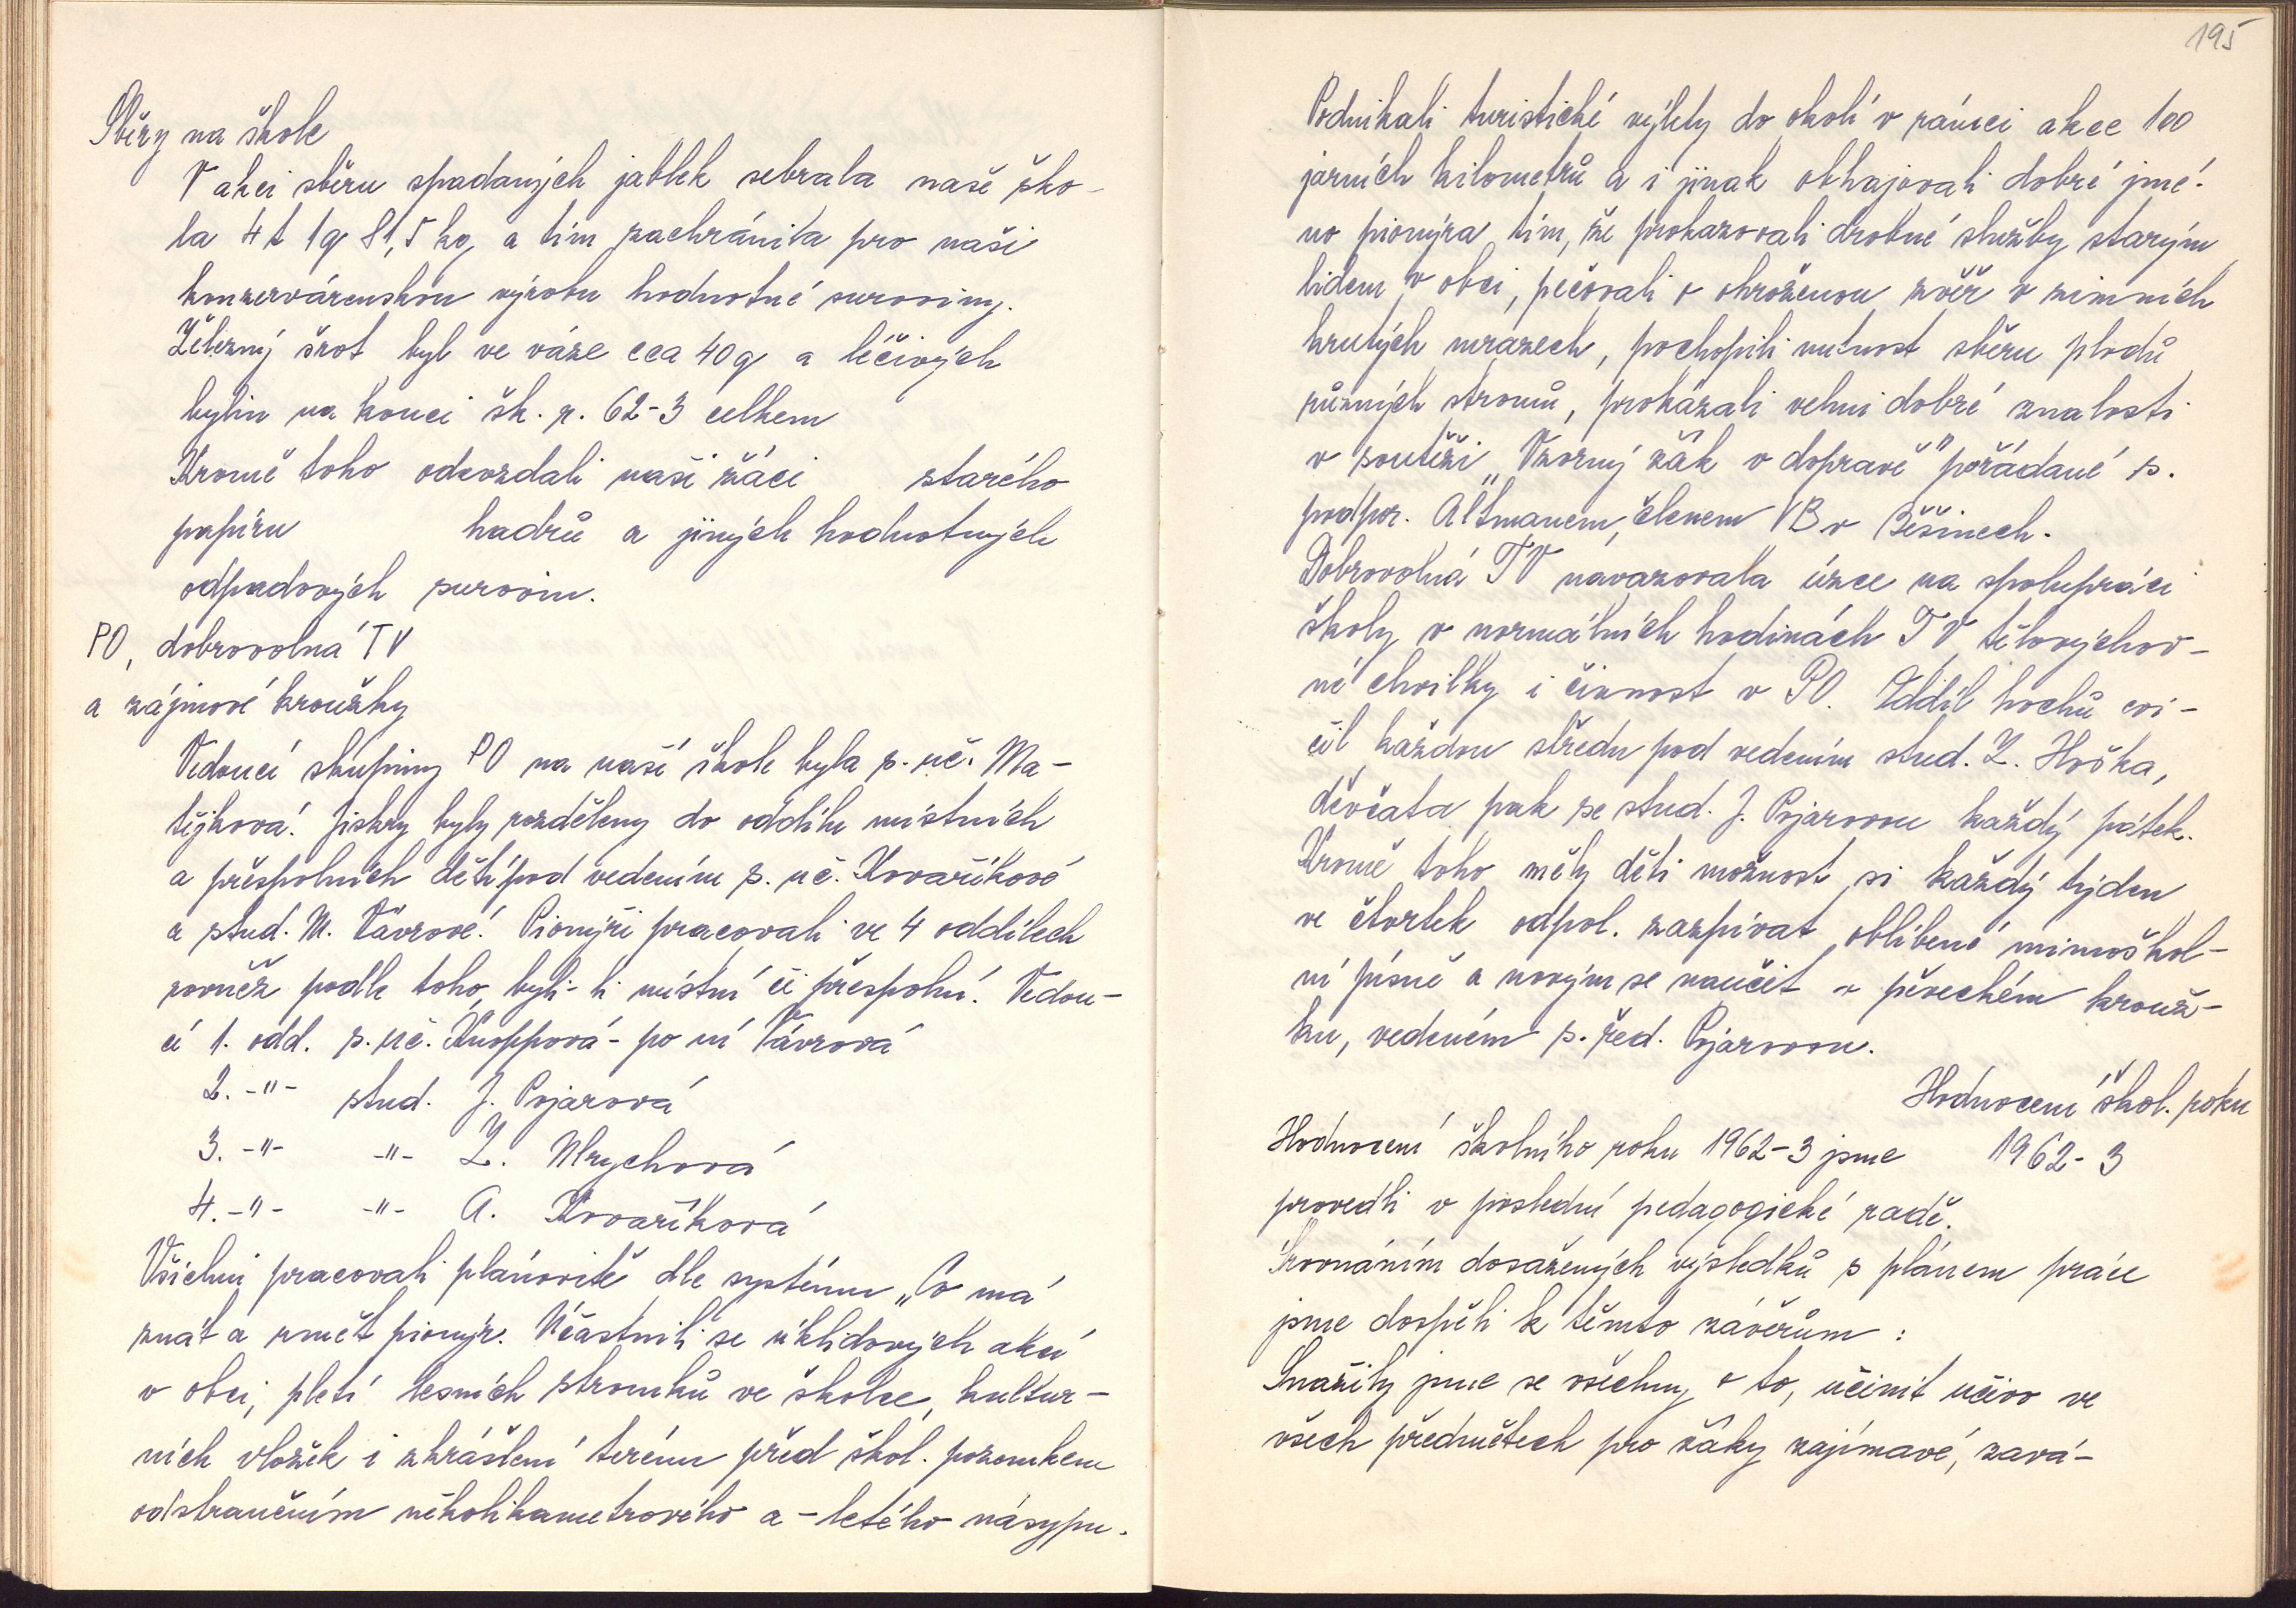 Sběry na škole
V akci sběru spadaných jablek sebrala naše ško-
la 4 t 1 q 81,5 kg a tím zachránila pro naši
konzervárenskou výrobu hodnotné suroviny.
Železný šrot byl ve váze cca 40 q a léčivých
bylin na konci šk. r. 62-3 celkem
Kromě toho odevzdali naši žáci starého
papíru hadrů a jiných hodnotných
odpadových surovin.
PO, dobrovolná TV
a zájmové kroužky
Vedoucí skupiny PO na naší škole byla s. uč. Ma-
tějková. Jiskry byly rozděleny do oddílu místních
a přespolních dětí pod vedením s. uč. Kovaříkové
a stud. M. Vávrové. Pionýři pracovali ve 4 oddílech
rovněž podle toho, byli-li místní či přespolní. Vedou-
cí 1. odd. s. uč. Knoppová - po ní Vávrová
2. -"- stud. J. Pojarová
3. -"- -"- Z. Mrychová
4. -"- -"- A. Kovaříková
Všichni pracovali plánovitě dle systému „Co má
znát a umět pionýr. Účastnili se úklidových akcí
v obci, pletí lesních stromků ve školce, kultur-
ních vložek i zkrášlení terénu před škol. pozemkem
odstraněním několikametrového a -letého násypu.
195
Podnikali turistické výlety do okolí v rámci akce 100
jarních kilometrů a i jinak obhajovali dobré jmé-
no pionýra tím, že prokazovali drobné služby starým
lidem v obci, pečovali o ohroženou zvěř v zimních
krutých mrazech, pochopili nutnost sběru plodů
různých stromů, prokázali velmi dobré znalosti
v soutěži „Vzorný žák v dopravě" pořádané s.
podpor. Altmanem, členem VB v Běšinech.
Dobrovolná TV navazovala úzce na spolupráci
školy v normálních hodinách TV, tělovýchov-
né chvilky i činnost v PO. Oddíl hochů cvi-
čil každou středu pod vedením stud. Z. Hoška,
děvčata pak se stud. J. Pojarovou každý pátek.
Kromě toho měly děti možnost si každý týden
ve čtvrtek odpol. zazpívat oblíbené mimoškol-
ní písně a novým se naučit v pěveckém krouž-
ku, vedeném s. řed. Pojarovou.
Hodnocení škol. roku
Hodnocení školního roku 1962-3 jsme 1962-3
provedli v poslední pedagogické radě.
Srovnáním dosažených výsledků s plánem práce
jsme dospěli k těmto závěrům:
Snažily jsme se všechny o to, učinit učivo ve
všech předmětech pro žáky zajímavé, zavá-